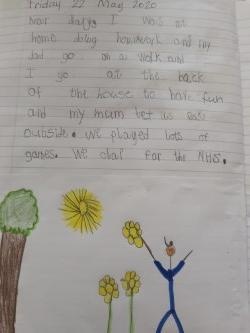 Friday 22 May 2020
Dear diary I was at
home doing homework and my
dad go on a walk and
I go at the back
of the house to have fun
and my mum let us
outside. We played lots of
games. We clap for the NHS.